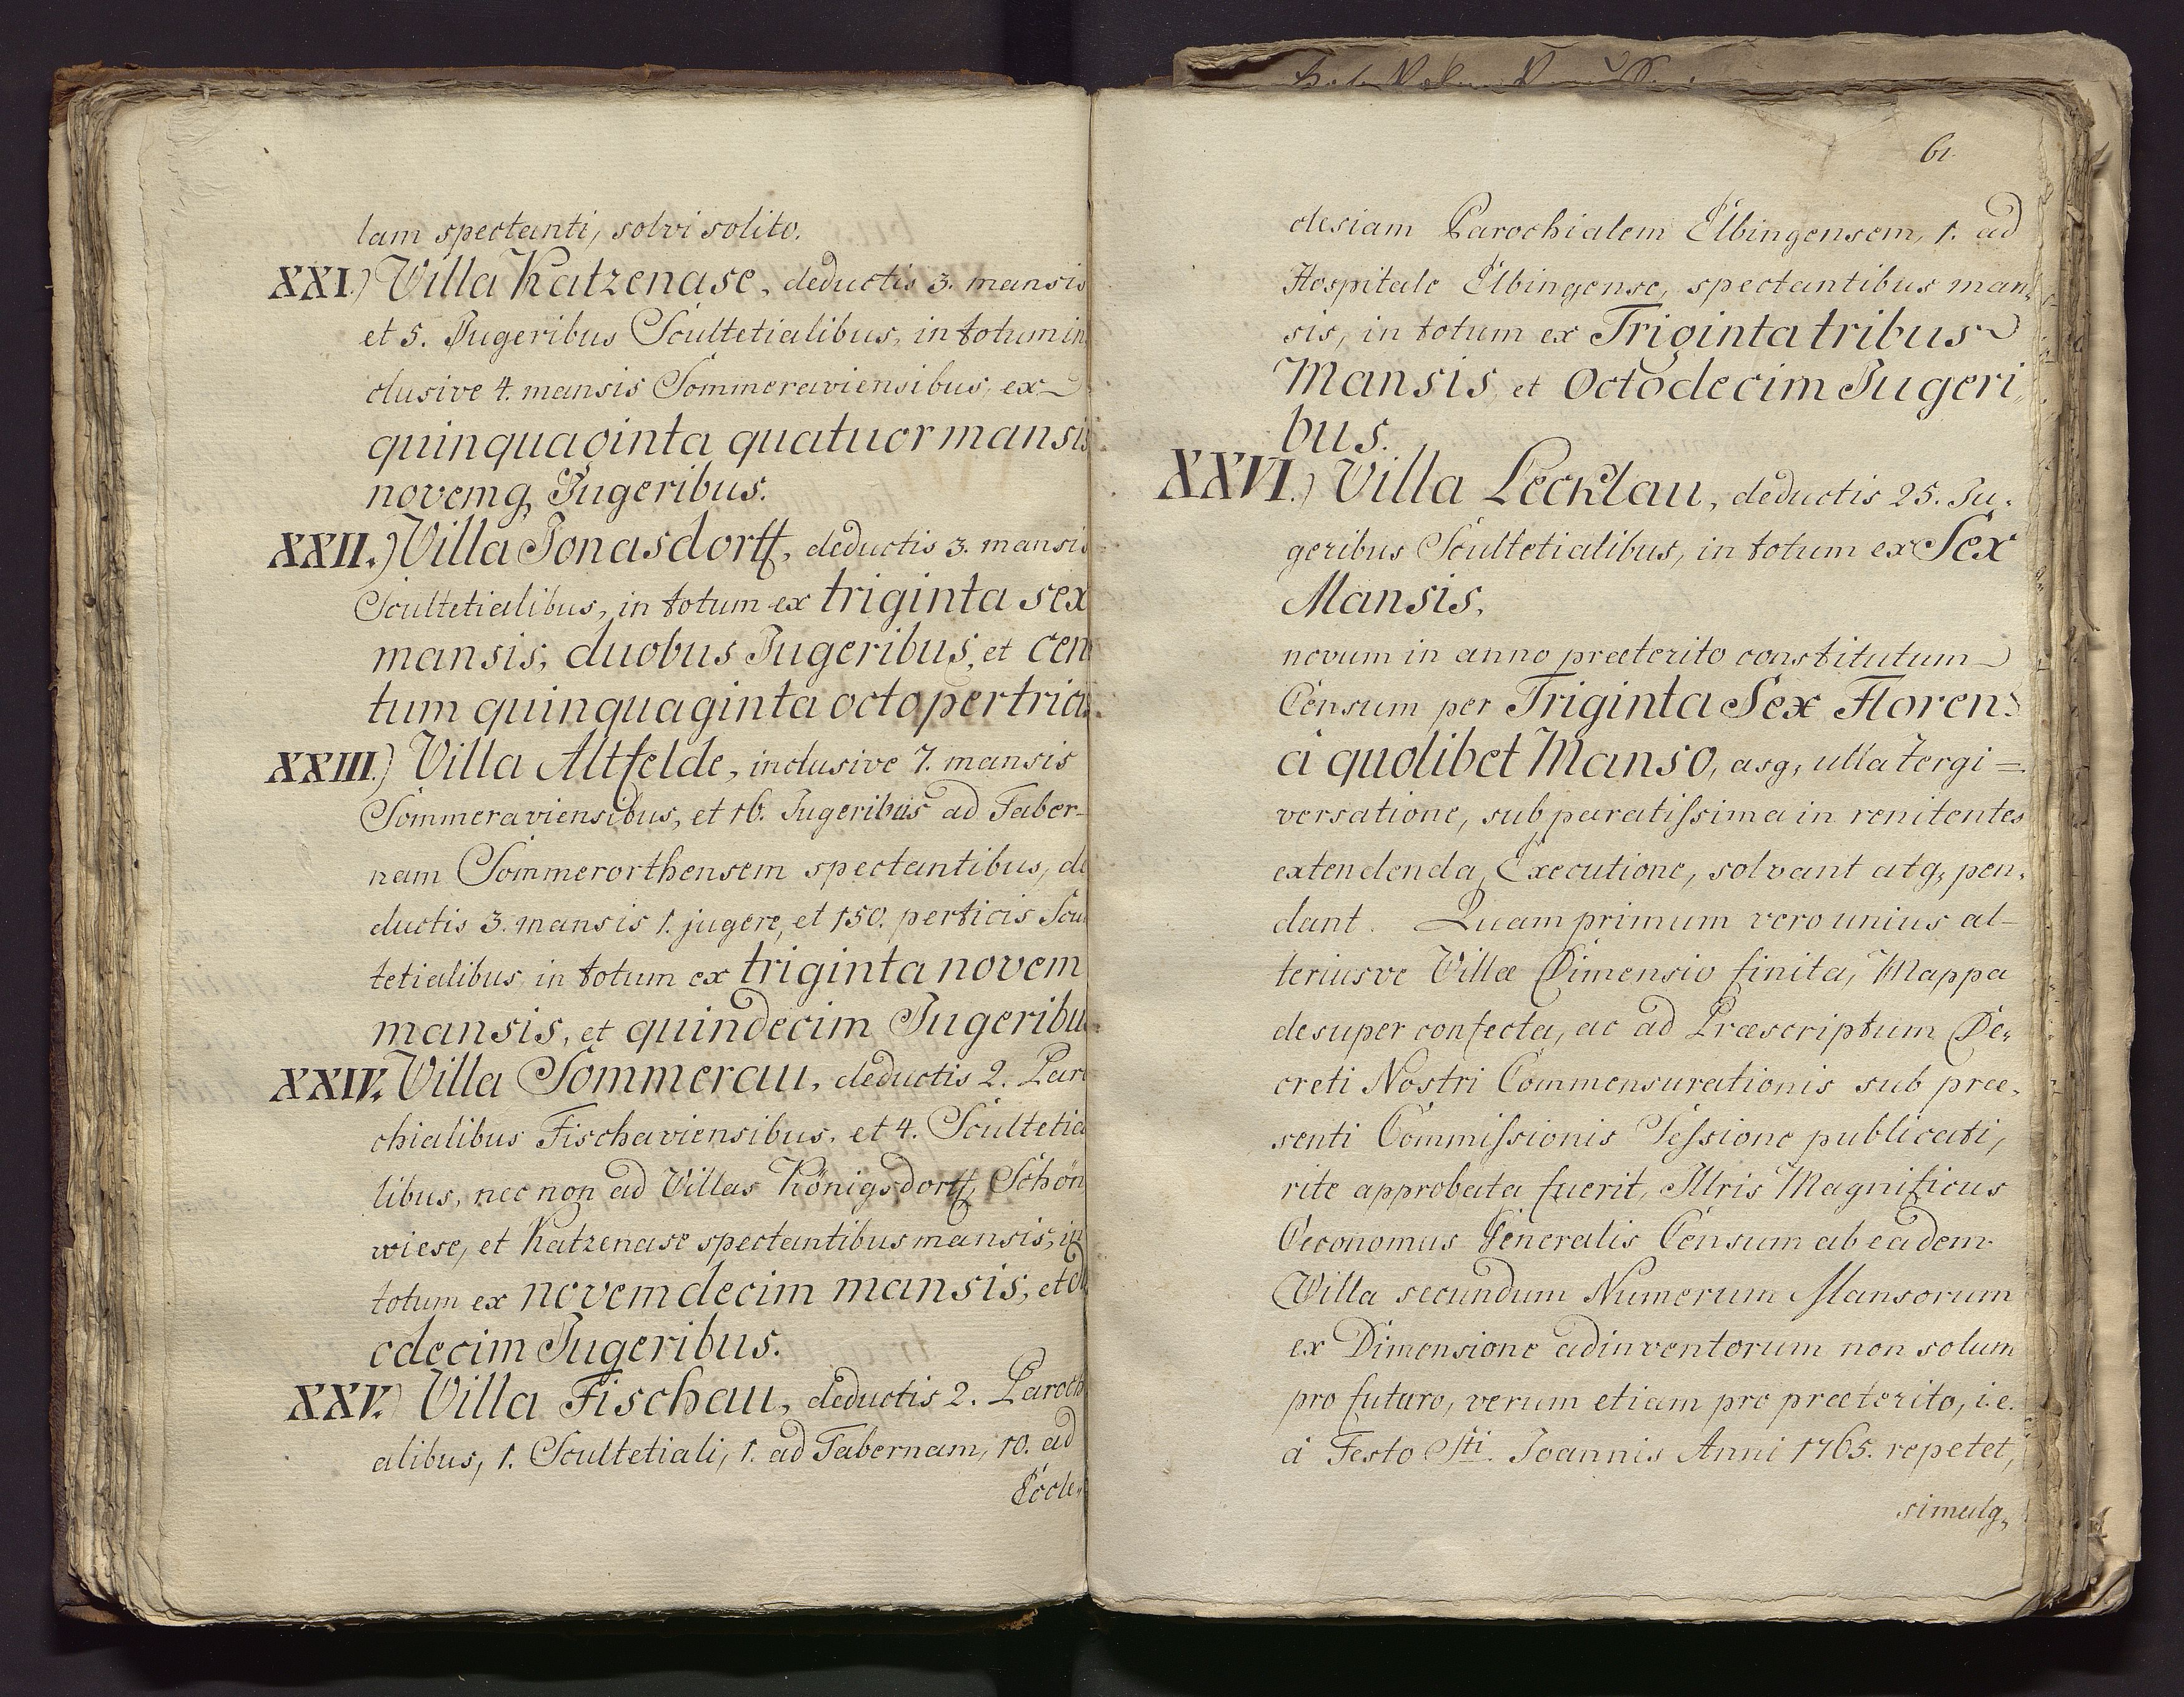 lam spectanti, solvi solito.
XXI.) Villa Katzenase, deductis 3. mansis
et 5. Jugeribus Scultetialibus, in totum in
clusive 4. mansis Sommeraviensibus, ex
quinquaginta quatuor mansis
novemq, Jugeribus.
XXII.) Villa Jonasdorff, deductis 3. mansis
Scultetialibus, in totum ex triginta sex
mansis, duobus Jugeribus, et cen
tum quinquaginta octo pertricis
XXIII.) Villa Altfelde, inclusive 7. mansis
Sommeraviensibus, et 16. Jugeribus ad Taber-
nam Sommerorthensem spectantibus, de
ductis 3. mansis 1. jugere, et 150. perticis Scul
tetialibus in totum ex triginta novem
mansis, et quindecim Jugeribu
XXIV. Villa Sommerau, deductis 2. Paro
chialibus Fischaviensibus, et 4. Scultetia
libus, nec non ad Villas Königsdorff, Schön
wiese, et Katzenase spectantibus mansis, in
totum ex novemdecim mansis, et du
odecim Jugeribus.
XXV.) Villa Fischau, deductis 2. Paroch
alibus, 1. Scultetiali, 1. ad Tabernam, 10. ad
Eccle,
61.
clesiam Parochialem Elbingensem, 1. ad
Hospitale Elbingense, spectantibus man,
sis, in totum ex Triginta tribus
Mansis, et Octodecim Jugeri,
bus.
XXVI.) Villa Lecklau, deductis 25. Ju,
geribus Scultetialibus, in totum ex Sex
Mansis.
novum in anno præterito constitutum
Censum per Triginta Sex Floren:
à quolibet Manso, asq, ulla tergi=
versatione, sub paratissima in renitentes
extendenda, Executione, solvant atq, pen,
dant. Quam primum vero unius al-
teriusve Villæ Dimensio finita, Mappa
desuper confecta, ac ad Præscriptum De,
creti Nostri Commensurationis sub præ,
senti Commissionis Sessione publicati,
rite approbata fuerit, Illris Magnificus
Oeconomus Generalis Censum ab eadem
Villa secundum Numerum Mansorum
ex Dimensione adinventorum non solum
pro futuro, verum etiam pro præterito, i.e.
à Festo Sti. Joannis Anni 1765. repetet,
simulq,